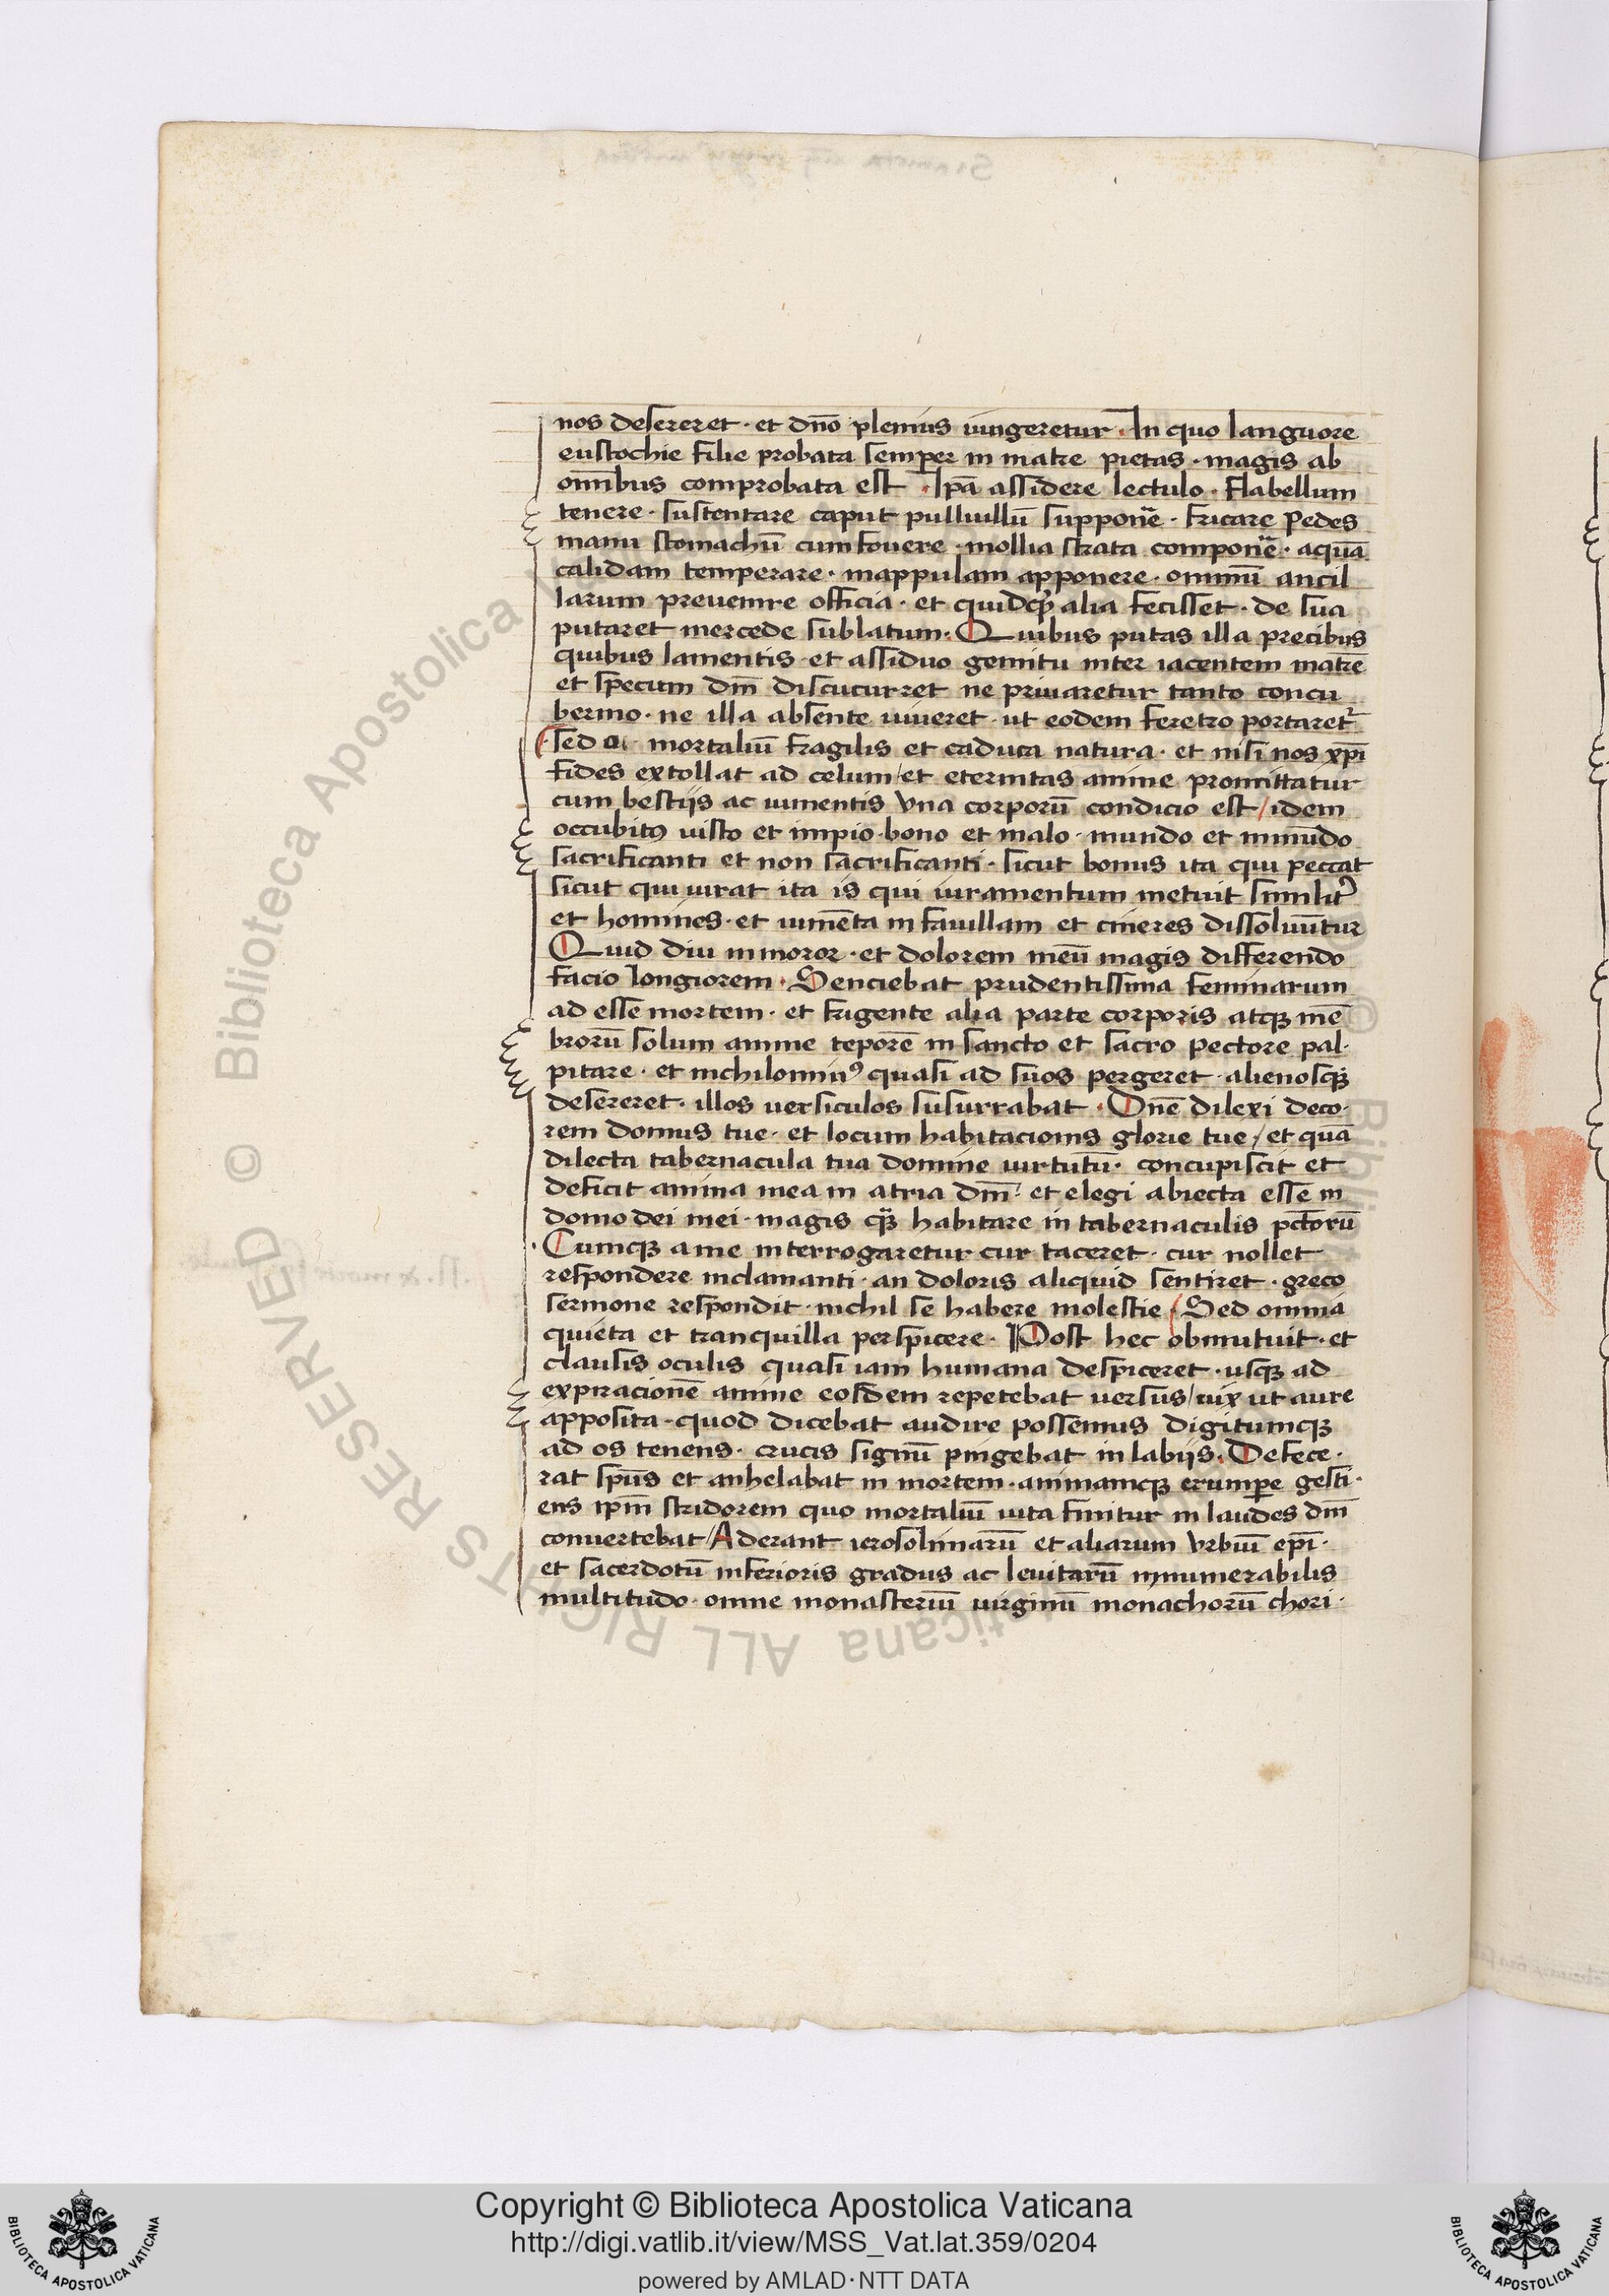 nos desereret · et dno̅ plenius iungeretur · In quo languore
eustochie filie probata semper in matre pietas · magis ab
omnibus comprobata est · Ipa̅ assidere lectulo · flabellum
tenere · sustentare caput pulluillu̅ suppone̅ · fricare pedes
manu stomachu̅ cumfouere · mollia strata compone̅ · aqua̅
calidam temperare · mappulam apponere · omniu̅ ancil
larum preuenire officia · et quidcꝙ alia fecisset · de sua
putaret mercede sublatum · Quibus putas illa precibus
quibus lamentis · et assiduo gemitu inter iacentem matre̅
et specum dm̅ discucurret ne priuaretur tanto concu
bernio · ne illa absente uiueret · ut eodem feretro portaret᷑
· sed o · mortaliu̅ fragilis et caduca natura · et nisi nos xp̅i
fides extollat ad celum / et eternitas anime promittatur
cum bestijs ac iumentis vna corporu̅ condicio est / idem
occubitꝰ iusto et impio · bono et malo · mundo et inmu̅do
sacrificanti et non sacrificanti · sicut bonus ita qui peccat
sicut qui iurat ita is qui iuramentum metuit similit᷑
et homines · et iume̅ta in fauillam et cineres dissoluu̅tur
Quid diu inmoror · et dolorem meu̅ magis differendo
facio longiorem · Senciebat prudentissima feminarum
ad esse mortem · et frigente alia parte corporis atqꝫ me̅
broru̅ solum anime tepore̅ in sancto et sacro pectore pal·
pitare · et nichilominꝰ quasi ad suos pergeret · alienosqꝫ
desereret · illos uersiculos susurrabat · Dne̅ dilexi deco·
rem domus tue · et locum habitacionis glorie tue / et qua̅
dilecta tabernacula tua domine uirtutu̅ · concupiscit et
deficit anima mea in atria dm̅ · et elegi abiecta esse in
domo dei mei · magis qᷓ habitare in tabernaculis pcto̅ru̅
· Cumqꝫ a me interrogaretur cur taceret · cur nollet
respondere inclamanti · an doloris aliquid sentiret · greco
sermone respondit · nichil se habere molestie / Sed omnia
quieta et tranquilla perspicere · Post hec obmutuit · et
clausis oculis quasi iam humana despiceret · usqꝫ ad
expiracione̅ anime eosdem repetebat uersus / uix ut aure
apposita · quod dicebat audire possemus digitumqꝫ
ad os tenens · crucis signu̅ pingebat in labijs · Defece·
rat sp̅us et anhelabat in mortem · animamqꝫ erumpe̅ gesti·
ens ipm̅ stridorem quo mortaliu̅ uita finitur in laudes dm̅
conuertebat / Aderant ierosolimaru̅ et aliarum vrbiu̅ ep̅i ·
et sacerdotu̅ inferioris gradus ac leuitaru̅ innumerabilis
multitudo · omne monasteriu̅ uirginu̅ monachoru̅ chori ·
© Biblioteca Apostolica Vaticana ALL RIGHTS RESERVED
Copyright © Biblioteca Apostolica Vaticana
http://digi.vatlib.it/view/MSS_Vat.lat.359/0204
powered by AMLAD·NTT DATA
BIBLIOTECA APOSTOLICA VATICANA
BIBLIOTECA APOSTOLICA VATICANA